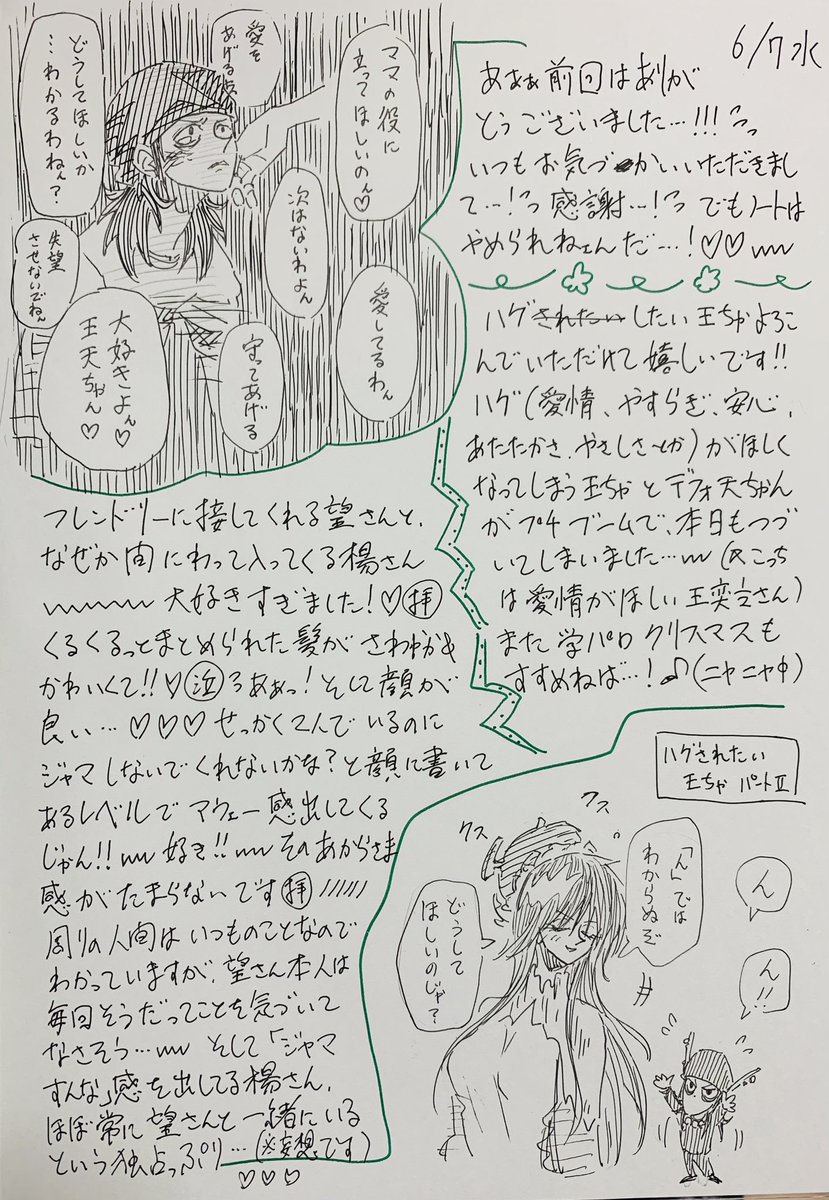 6/7水
あぁぁ前回はありが
とうございました…!!!
いつもお気づかいいただきまし
て…!っ感謝…!っ でもノートは
やめられねェんだ…!♡♡
ハグされたいしたい王ちゃよろこ
んでいただけて嬉しいです!!
ハグ(愛情、やすらぎ、安心、
あたたかさ、やさしさとか)がほしく
なってしまう王ちゃとデフォ天ちゃん
がプチブームで、本日もつづ
いてしまいました…(※こっち
は愛情がほしい王奕さん)
また学パロクリスマスも
すすめねば…!♪(ニヤニヤ中)
愛を
あげるから
ママの役に
立ってほしいのん♡
どうしてほしいか
…わかるわねぇ?
次はないわよん
失望
させないでねん
愛してるわん
守ってあげる
大好きよん♡
王天ちゃん♡
フレンドリーに接してくれる望さんと、
なぜか間にわって入ってくる楊さん
大好きすぎました!♡拝
くるくるっとまとめられた髪がさわやか&
かわいくて!!♡泣ろあぁっ!そして顔が
良い…♡♡♡せっかく2人でいるのに
ジャマしないでくれないかな?と顔に書いて
あるレベルでアウェー感出してくる
じゃん!!好き!!そのあからさま
感がたまらないです拝
周りの人間はいつものことなので
わかっていますが、望さん本人は
毎回そうだってことを気づいて
なさそう…そして「ジャマ
すんな」感を出してる楊さん、
ほぼ常に望さんと一緒にいる
という独占っぷり…(※妄想です)
♡♡♡
ハグされたい
王ちゃ パートⅡ
クス
クス
「ん」では
わからぬぞ
どうして
ほしいのじゃ?
ん
ん!!